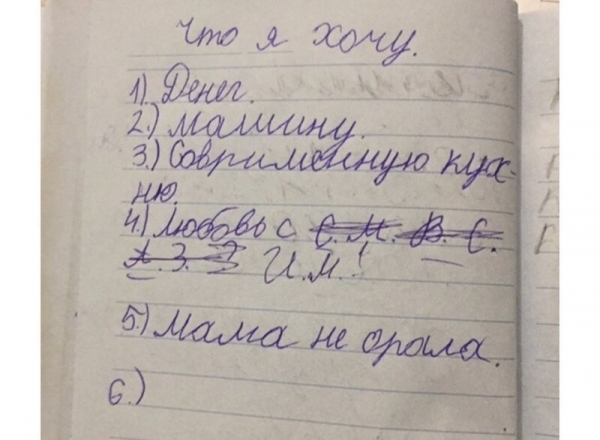 Что я хочу.
1). Денег.
2.) машину.
3.) Соврименную кух-
ню.
4.) любовь с С. М. В. С.
А. З. Э И.М.!
5.) мама не орала.
6.)